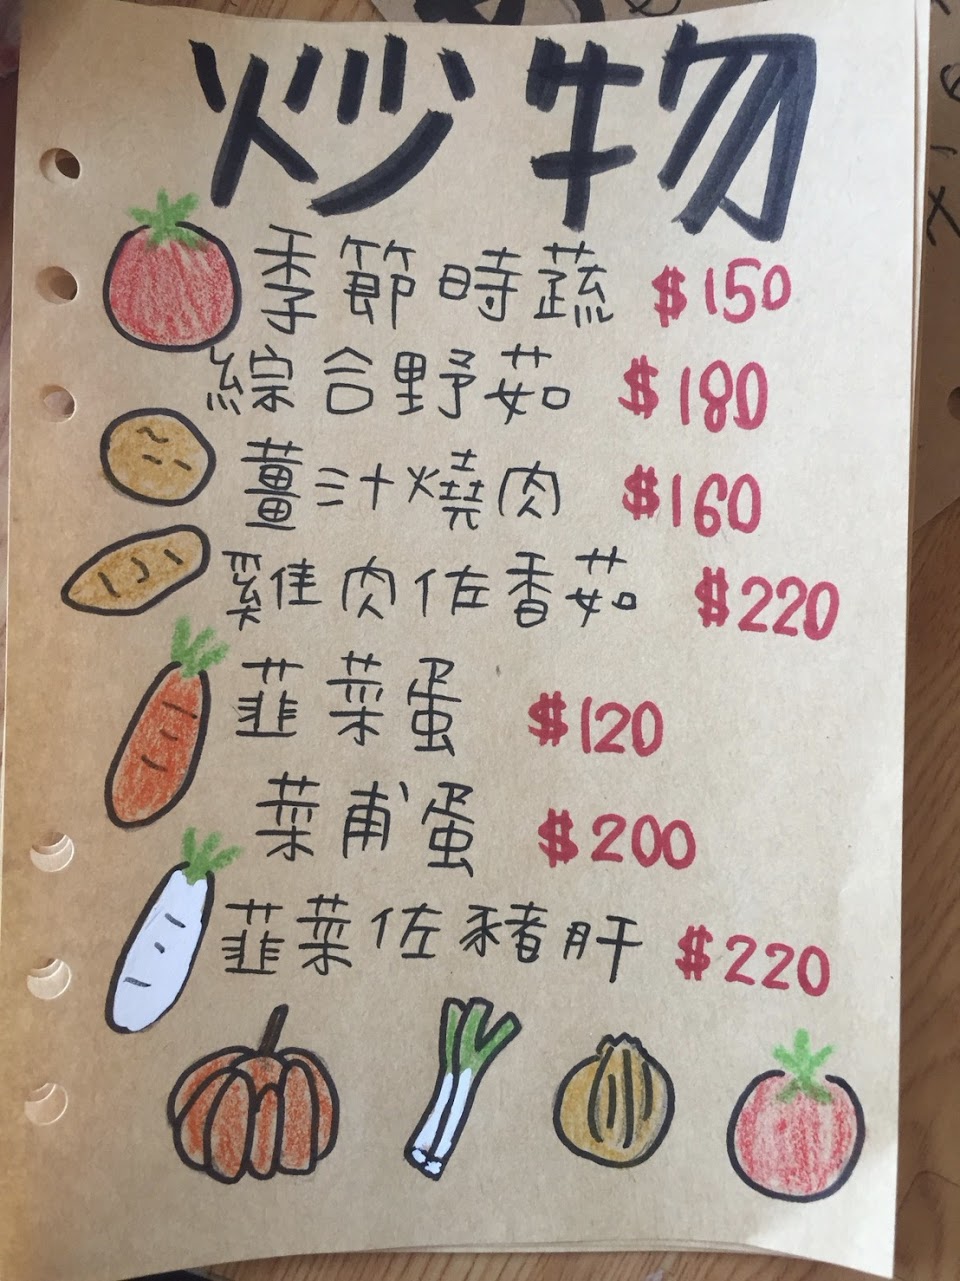 炒物
季節時蔬 $150
綜合野茹 $180
薑汁燒肉 $160
雞肉佐香茹 $220
韮菜蛋 $120
菜甫蛋 $200
韮菜佐豬肝 $220